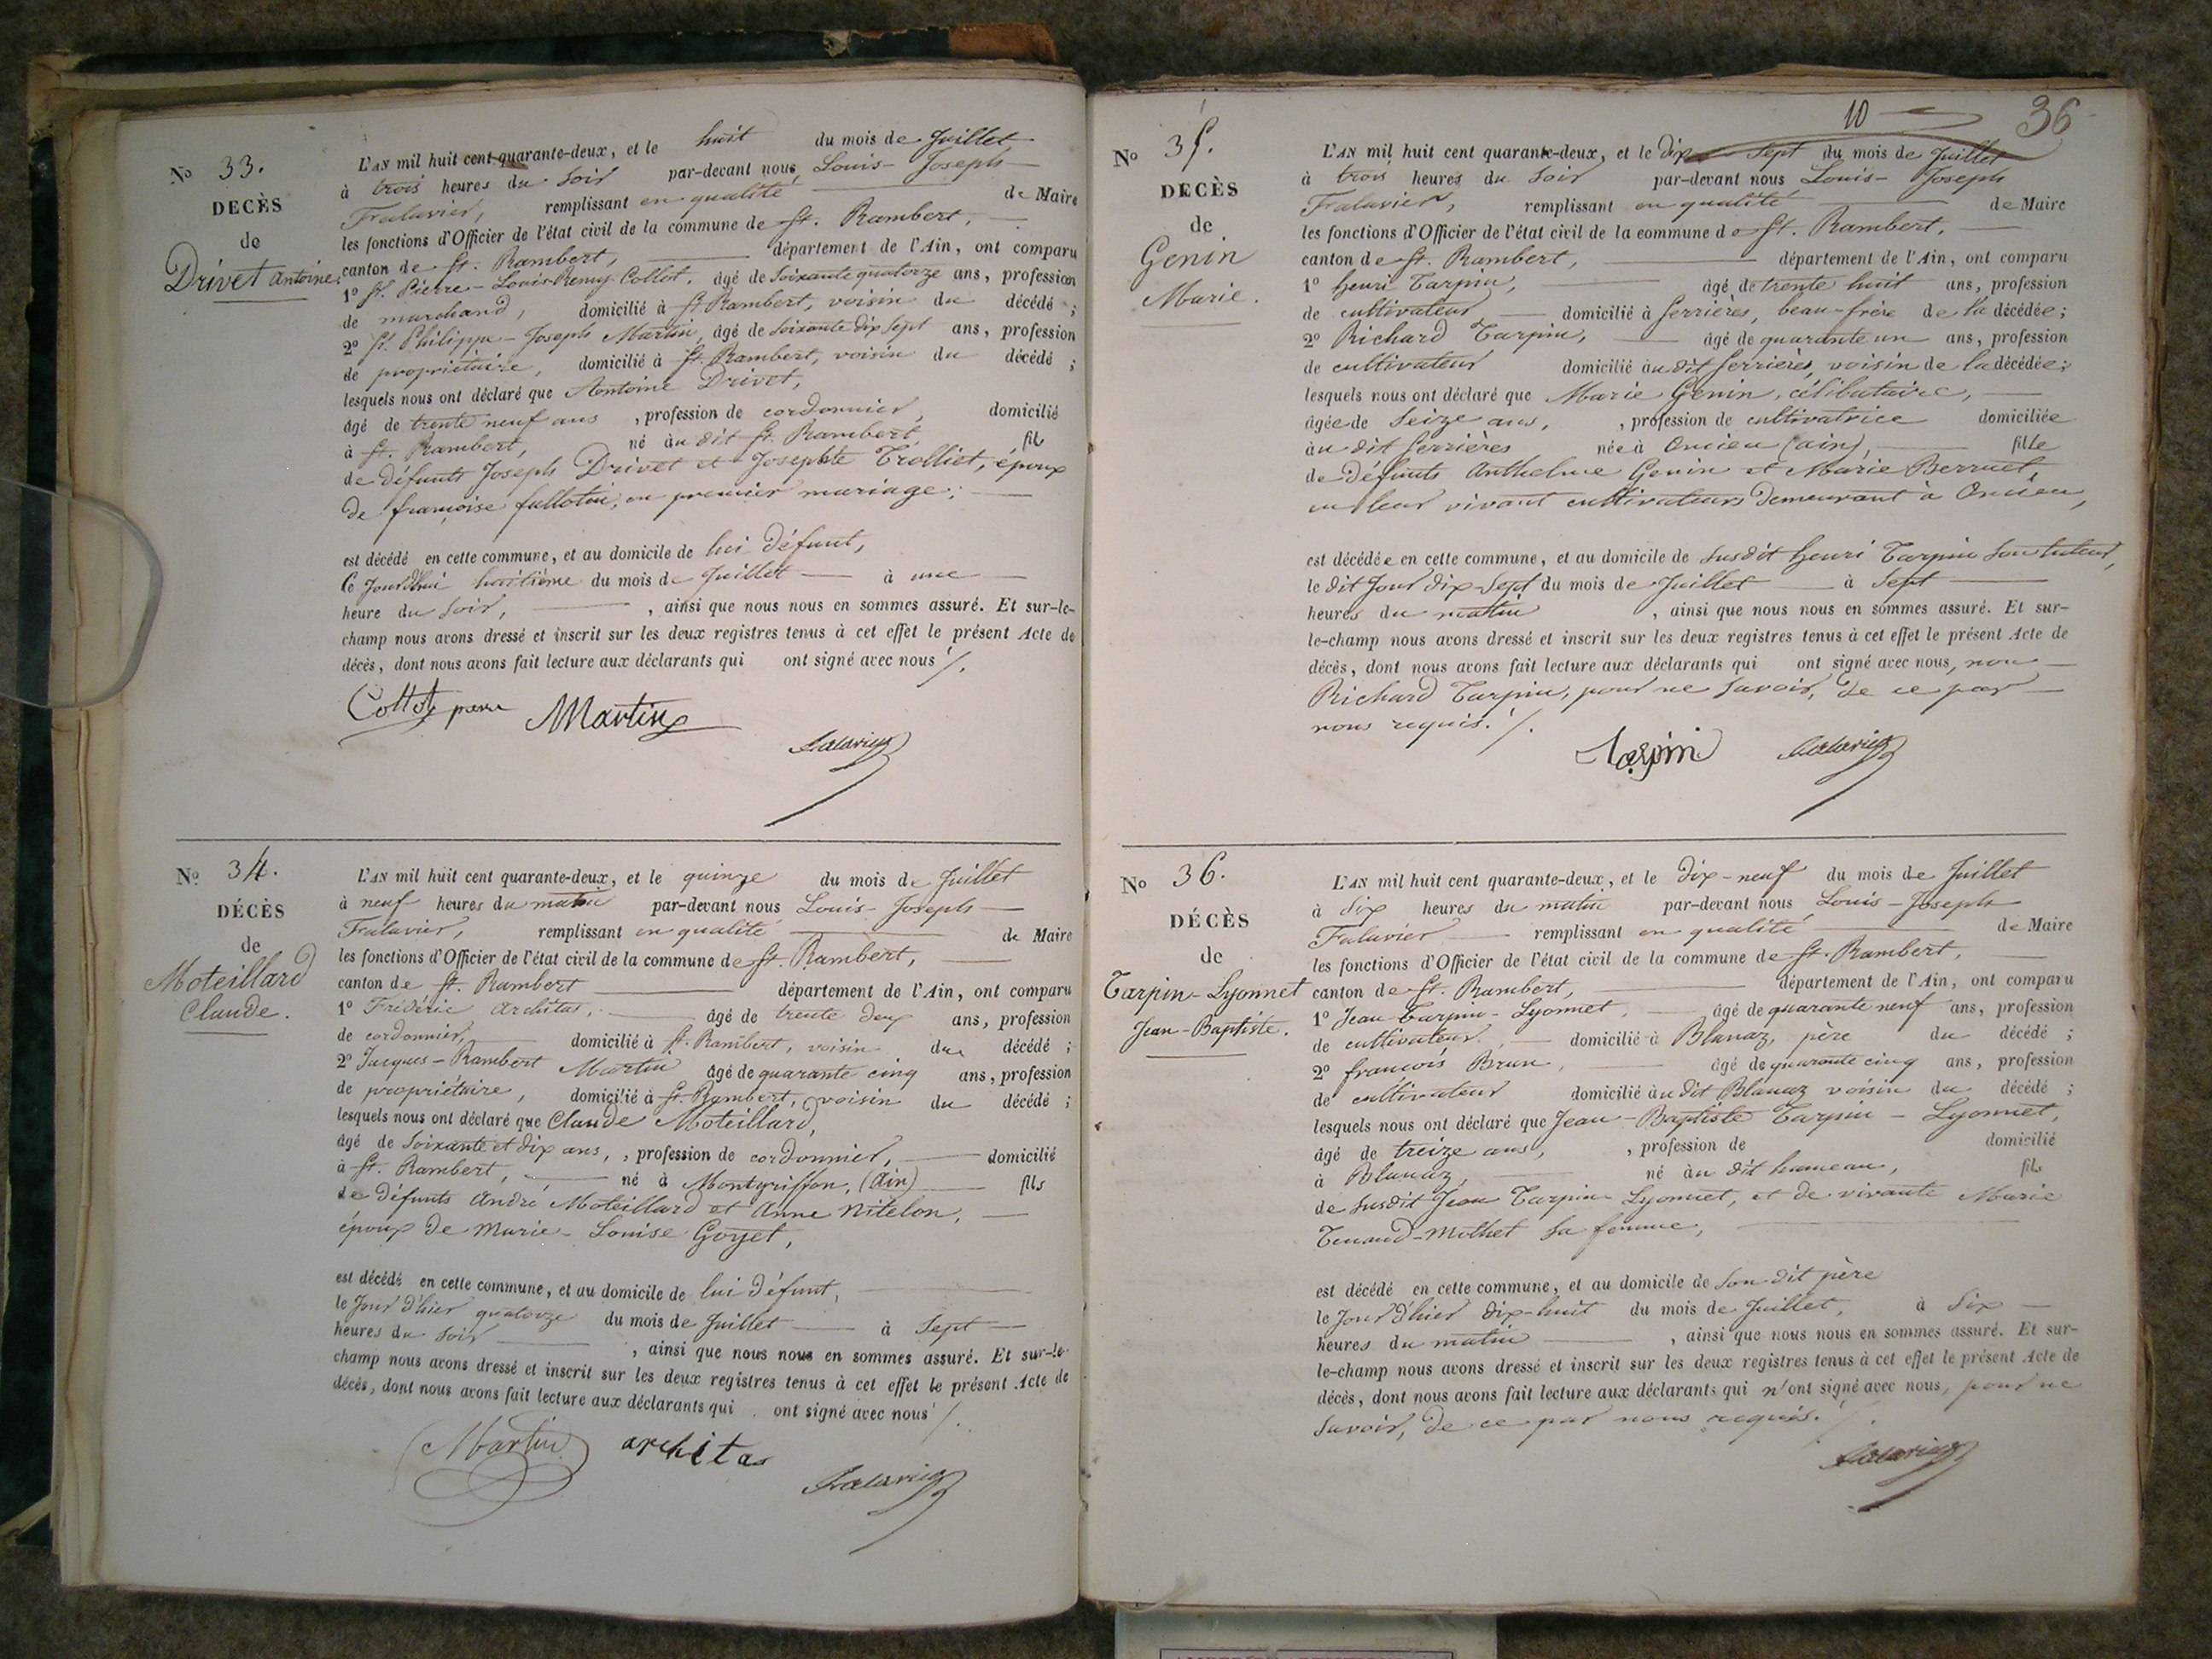 No 33.
DECÈS
de
Drivet Antoine.
L'AN mil huit cent quarante-deux, et le huit du mois de Juillet
à trois heures du Soir par-devant nous, Louis-Joseph
Falavier, remplissant en qualité de Maire
les fonctions d'Officier de l'état civil de la commune de St. Rambert,
canton de St. Rambert, département de l'Ain, ont comparu
1o Sr. Pierre-Louis-Remy Collot, âgé de Soixante quatorze ans, profession
de marchand, domicilié à St Rambert, voisin du décédé;
2o Sr. Philippe-Joseph Martin, âgé de Soixante dix Sept ans, profession
de propriétaire, domicilié à St Rambert, voisin du décédé;
lesquels nous ont déclaré que Antoine Drivet,
âgé de trente neuf ans, profession de cordonnier, domicilié
à St. Rambert, né au dit St. Rambert, fils
de défunts Joseph Drivet et Josephte Trolliet, époux
de françoise, en premier mariage;
est décédé en cette commune, et au domicile de lui défunt,
Ce Jourd'hui huitième du mois de Juillet à une
heure du Soir, ainsi que nous nous en sommes assuré. Et sur-le-
champ nous avons dressé et inscrit sur les deux registres tenus à cet effet le présent Acte de
décès, dont nous avons fait lecture aux déclarants qui ont signé avec nous /.
Collot père Martin Falavier
No 34.
DÉCÈS
de
Moteillard
Claude.
L'AN mil huit cent quarante-deux, et le quinze du mois de Juillet
à neuf heures du matin par-devant nous Louis-Joseph
Falavier, remplissant en qualité de Maire
les fonctions d'Officier de l'état civil de la commune de St. Rambert,
canton de St. Rambert département de l'Ain, ont comparu
1o Fréderic Architas, âgé de trente deux ans, profession
de cordonnier, domicilié à St. Rambert, voisin du décédé;
2o Jacques-Rambert Martin âgé de quarante cinq ans, profession
de propriétaire, domicilié à St. Rambert, voisin du décédé;
lesquels nous ont déclaré que Claude Moteillard,
âgé de Soixante et dix ans, profession de cordonnier, domicilié
à St. Rambert, né à Montgriffon, (Ain) fils
de défunts André Moteillard et Anne Nitelon,
époux de Marie-Louise Goyet,
est décédé en cette commune, et au domicile de lui défunt,
le Jour d'hier quatorze du mois de Juillet à Sept
heures du Soir, ainsi que nous nous en sommes assuré. Et sur-le-
champ nous avons dressé et inscrit sur les deux registres tenus à cet effet le présent Acte de
décès, dont nous avons fait lecture aux déclarants qui ont signé avec nous /.
Martin architas Falavier
10 36
No 35.
DECÈS
de
Genin
Marie.
L'AN mil huit cent quarante-deux, et le dix Sept du mois de Juillet
à trois heures du Soir par-devant nous Louis-Joseph
Falavier, remplissant en qualité de Maire
les fonctions d'Officier de l'état civil de la commune de St. Rambert,
canton de St. Rambert, département de l'Ain, ont comparu
1o henri Tarpin, âgé de trente huit ans, profession
de cultivateur, domicilié à Serrières, beau-frère de la décédée;
2o Richard Tarpin, âgé de quarante un ans, profession
de cultivateur domicilié au dit Serrières, voisin de la décédée;
lesquels nous ont déclaré que Marie Genin, célibataire,
âgée de Seize ans, profession de cultivatrice domiciliée
au dit Serrières née à Oncieu (ain), fille
de Défunts Anthelme Genin et Marie Berruet,
en leur vivant cultivateurs demeurant à Oncieu,
est décédée en cette commune, et au domicile de Susdit henri Tarpin Son tuteur,
le dit Jour dix-Sept du mois de Juillet à Sept
heures du matin, ainsi que nous nous en sommes assuré. Et sur-
le-champ nous avons dressé et inscrit sur les deux registres tenus à cet effet le présent Acte de
décès, dont nous avons fait lecture aux déclarants qui ont signé avec nous, non
Richard Tarpin, pour ne Savoir, de ce par
nous requis. /.
Tarpin Falavier
No 36.
DÉCÈS
de
Tarpin-Lyonnet
Jean-Baptiste.
L'AN mil huit cent quarante-deux, et le dix-neuf du mois de Juillet
à dix heures du matin par-devant nous, Louis-Joseph
Falavier remplissant en qualité de Maire
les fonctions d'Officier de l'état civil de la commune de St. Rambert,
canton de St. Rambert, département de l'Ain, ont comparu
1o Jean Tarpin-Lyonnet, âgé de quarante neuf ans, profession
de cultivateur, domicilié à Blanaz, père du décédé;
2o françois Brun, âgé de quarante cinq ans, profession
de cultivateur domicilié au dit Blanaz voisin du décédé;
lesquels nous ont déclaré que Jean-Baptiste Tarpin-Lyonnet,
âgé de treize ans, profession de domicilié
à Blanaz, né au dit hameau, fils
de Susdit Jean Tarpin Lyonnet, et de vivante Marie
Tenand-Mothet Sa femme,
est décédé en cette commune, et au domicile de Son dit père
le Jour d'hier dix-huit du mois de Juillet, à Six
heures du matin, ainsi que nous nous en sommes assuré. Et sur-
le-champ nous avons dressé et inscrit sur les deux registres tenus à cet effet le présent Acte de
décès, dont nous avons fait lecture aux déclarants qui n'ont signé avec nous, pour ne
Savoir, de ce par nous requis. /.
Falavier